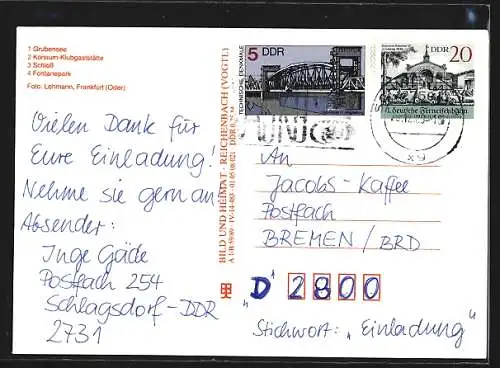 1 Grubensee
2 Konsum-Klubgaststätte
3 Schloß
4 Fontanepark
Foto: Lehmann, Frankfurt (Oder)
Vielen Dank für
Eure Einladung!
Nehme sie gern an.
Absender:
Inge Gäde
Postfach 254
Schlagsdorf-DDR
2731
BILD UND HEIMAT · REICHENBACH (VOGTL)
5 DDR
TECHNISCHE DENKMALE
DDR 20
An
Jacobs-Kaffee
Postfach
BREMEN/BRD
"D" 2800
Stichwort: „Einladung"